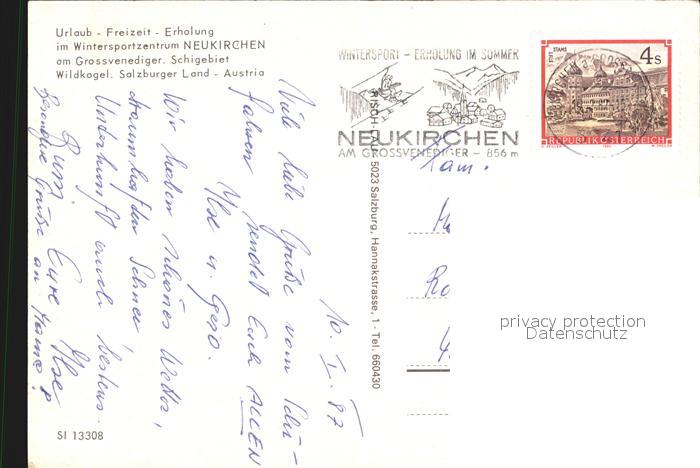 Urlaub - Freizeit - Erholung
im Wintersportzentrum NEUKIRCHEN
am Grossvenediger. Schigebiet
Wildkogel. Salzburger Land - Austria
WINTERSPORT - ERHOLUNG IM SOMMER
NEUKIRCHEN
AM GROSSVENEDIGER - 856 m
STIFT STAMS
4 S
REPUBLIK ÖSTERREICH
5023 Salzburg, Hannakstrasse, 1 - Tel. 660430
10. I. 87
Viele liebe Grüße vom Schi-
fahren sendet Euch ALLEN
Ilse u. Gero.
Wir haben schönes Wetter,
traumhaften Schnee,
Unterkunft auch bestens.
Bumi Eure Ilse
Besondere Grüße an Mama!
Fam.
Ro
4
SI 13308
privacy protection
Datenschutz